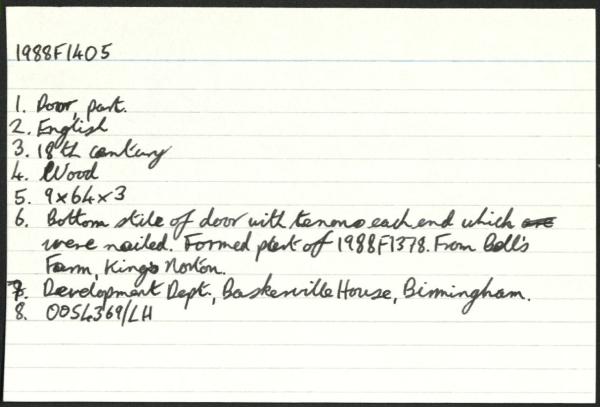 1988F1405
1. Door, part.
2. English
3. 18th century
4. Wood
5. 9x64x3
6. Bottom stile of door with tenons each end which are
were nailed. Formed part of 1988F1378. From Bell's
Farm, King's Norton.
7. Development Dept., Baskerville House, Birmingham.
8. 0054369/LH